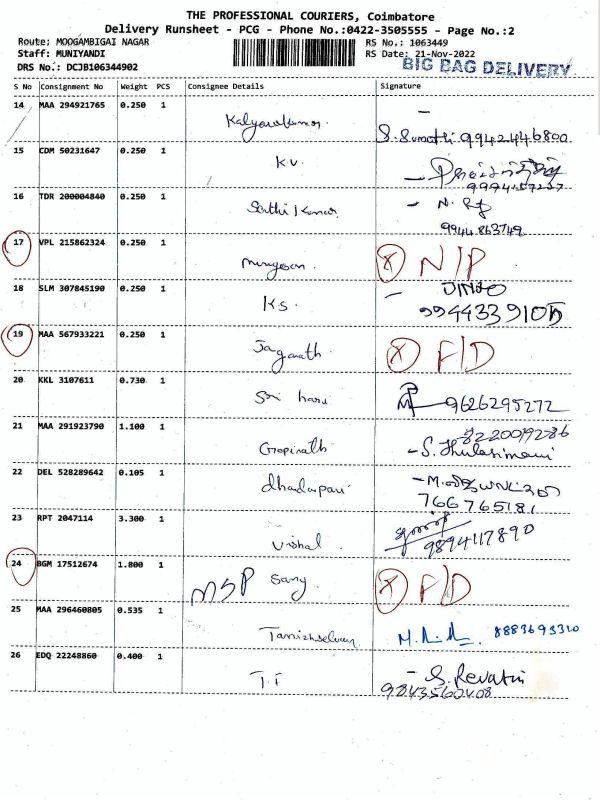 THE PROFESSIONAL COURIERS, Coimbatore
Delivery Runsheet - PCG - Phone No.:0422-3505555 - Page No.:2
Route: MOOGAMBIGAI NAGAR
RS No.: 1063449
Staff: MUNIYANDI
RS Date: 21-Nov-2022
DRS No.: DCJB106344902
BIG BAG DELIVERY
S No Consignment No Weight PCS Consignee Details Signature
14 MAA 294921765 0.250 1
S. Sumathi 9942446800
15 CDM 50231647 0.250 1 K.V.
16 TDR 200004840 0.250 1 Sathi Kumar
9944863749
17 VPL 215862324 0.250 1 Murugesan X N/P
18 SLM 307845190 0.250 1 K.S. JINJO
19 MAA 567933221 0.250 1 Jaganath X F/D
20 KKL 3107611 0.730 1 Sri hari 9626295272
21 MAA 291923790 1.100 1 Gopinath 8220019286
S. Thulasimani
22 DEL 528289642 0.105 1
766765181
23 RPT 2047114 3.300 1 Vishal 9894117890
24 BGM 17512674 1.800 1 MSP Sany X F/D
25 MAA 296460805 0.535 1 Tamizhselvan 8883693310
26 EDQ 22248860 0.400 1 T.T S. Revathi
9843560408